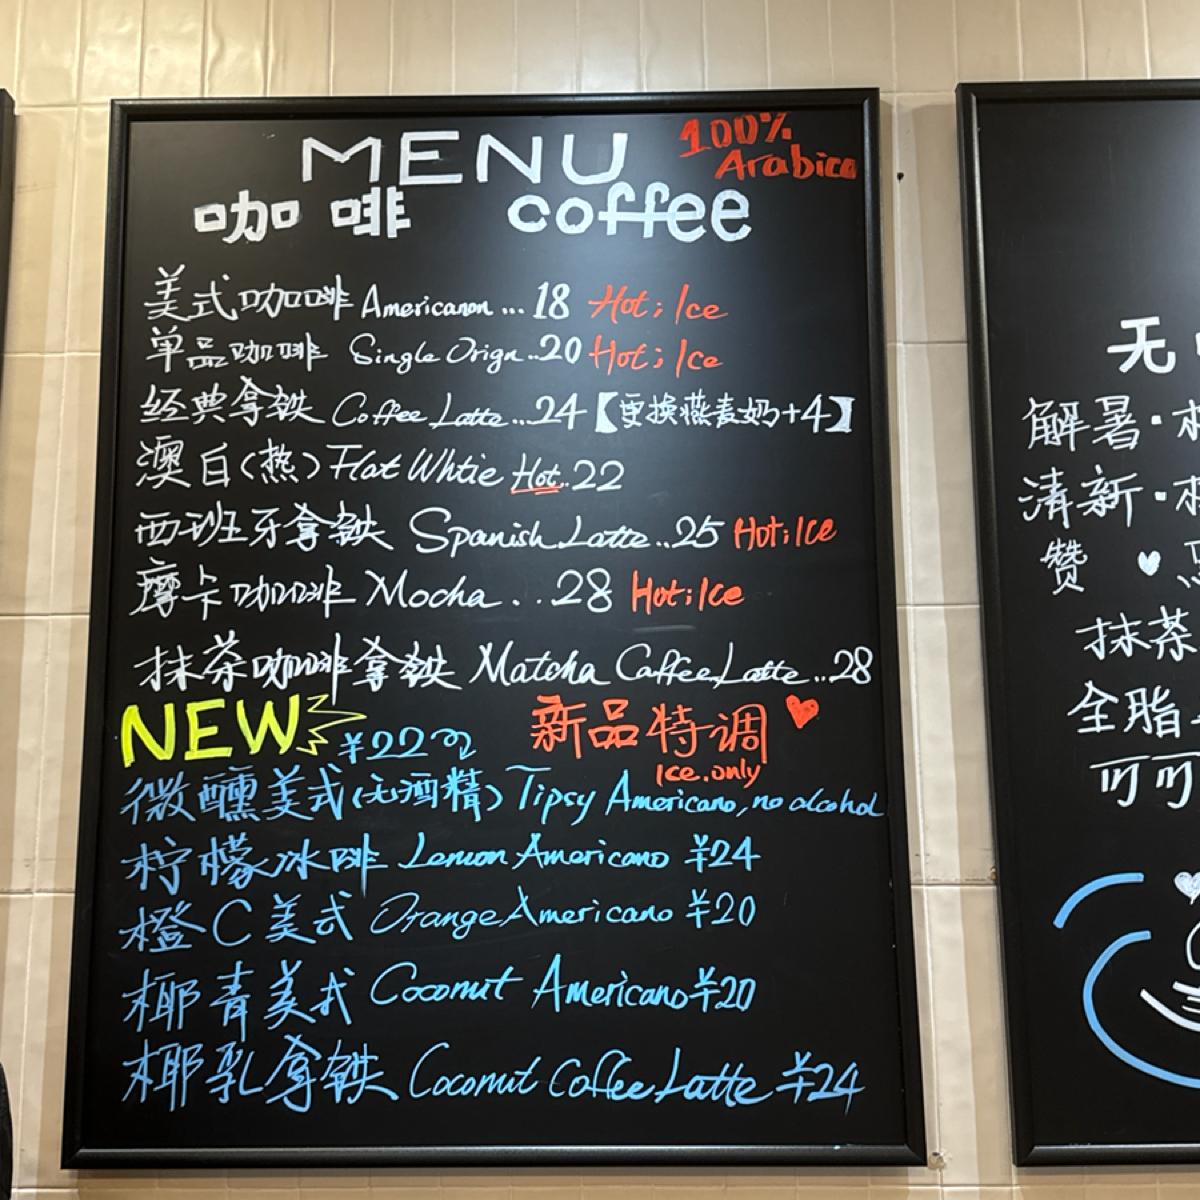 MENU 100% Arabica
咖啡 coffee
美式咖啡 Americanon ... 18 Hot; Ice
单品咖啡 Single Orign ..20 Hot; Ice
经典拿铁 Coffee Latte ...24【更换燕麦奶+4】
澳白(热) Flat Whtie Hot..22
西班牙拿铁 Spanish Latte ..25 Hot; Ice
摩卡咖啡 Mocha . ..28 Hot; Ice
抹茶咖啡拿铁 Matcha Caffee Latte ..28
NEW ¥22 新品特调
Ice.only
微醺美式(无酒精) Tipsy Americano, no alcohol
柠檬冰啡 Lemon Americano ¥24
橙C美式 Orange Americano ¥20
椰青美式 Coconut Americano ¥20
椰乳拿铁 Coconut Coffee Latte ¥24
无
解暑·
清新·
赞
抹茶
全脂
可可